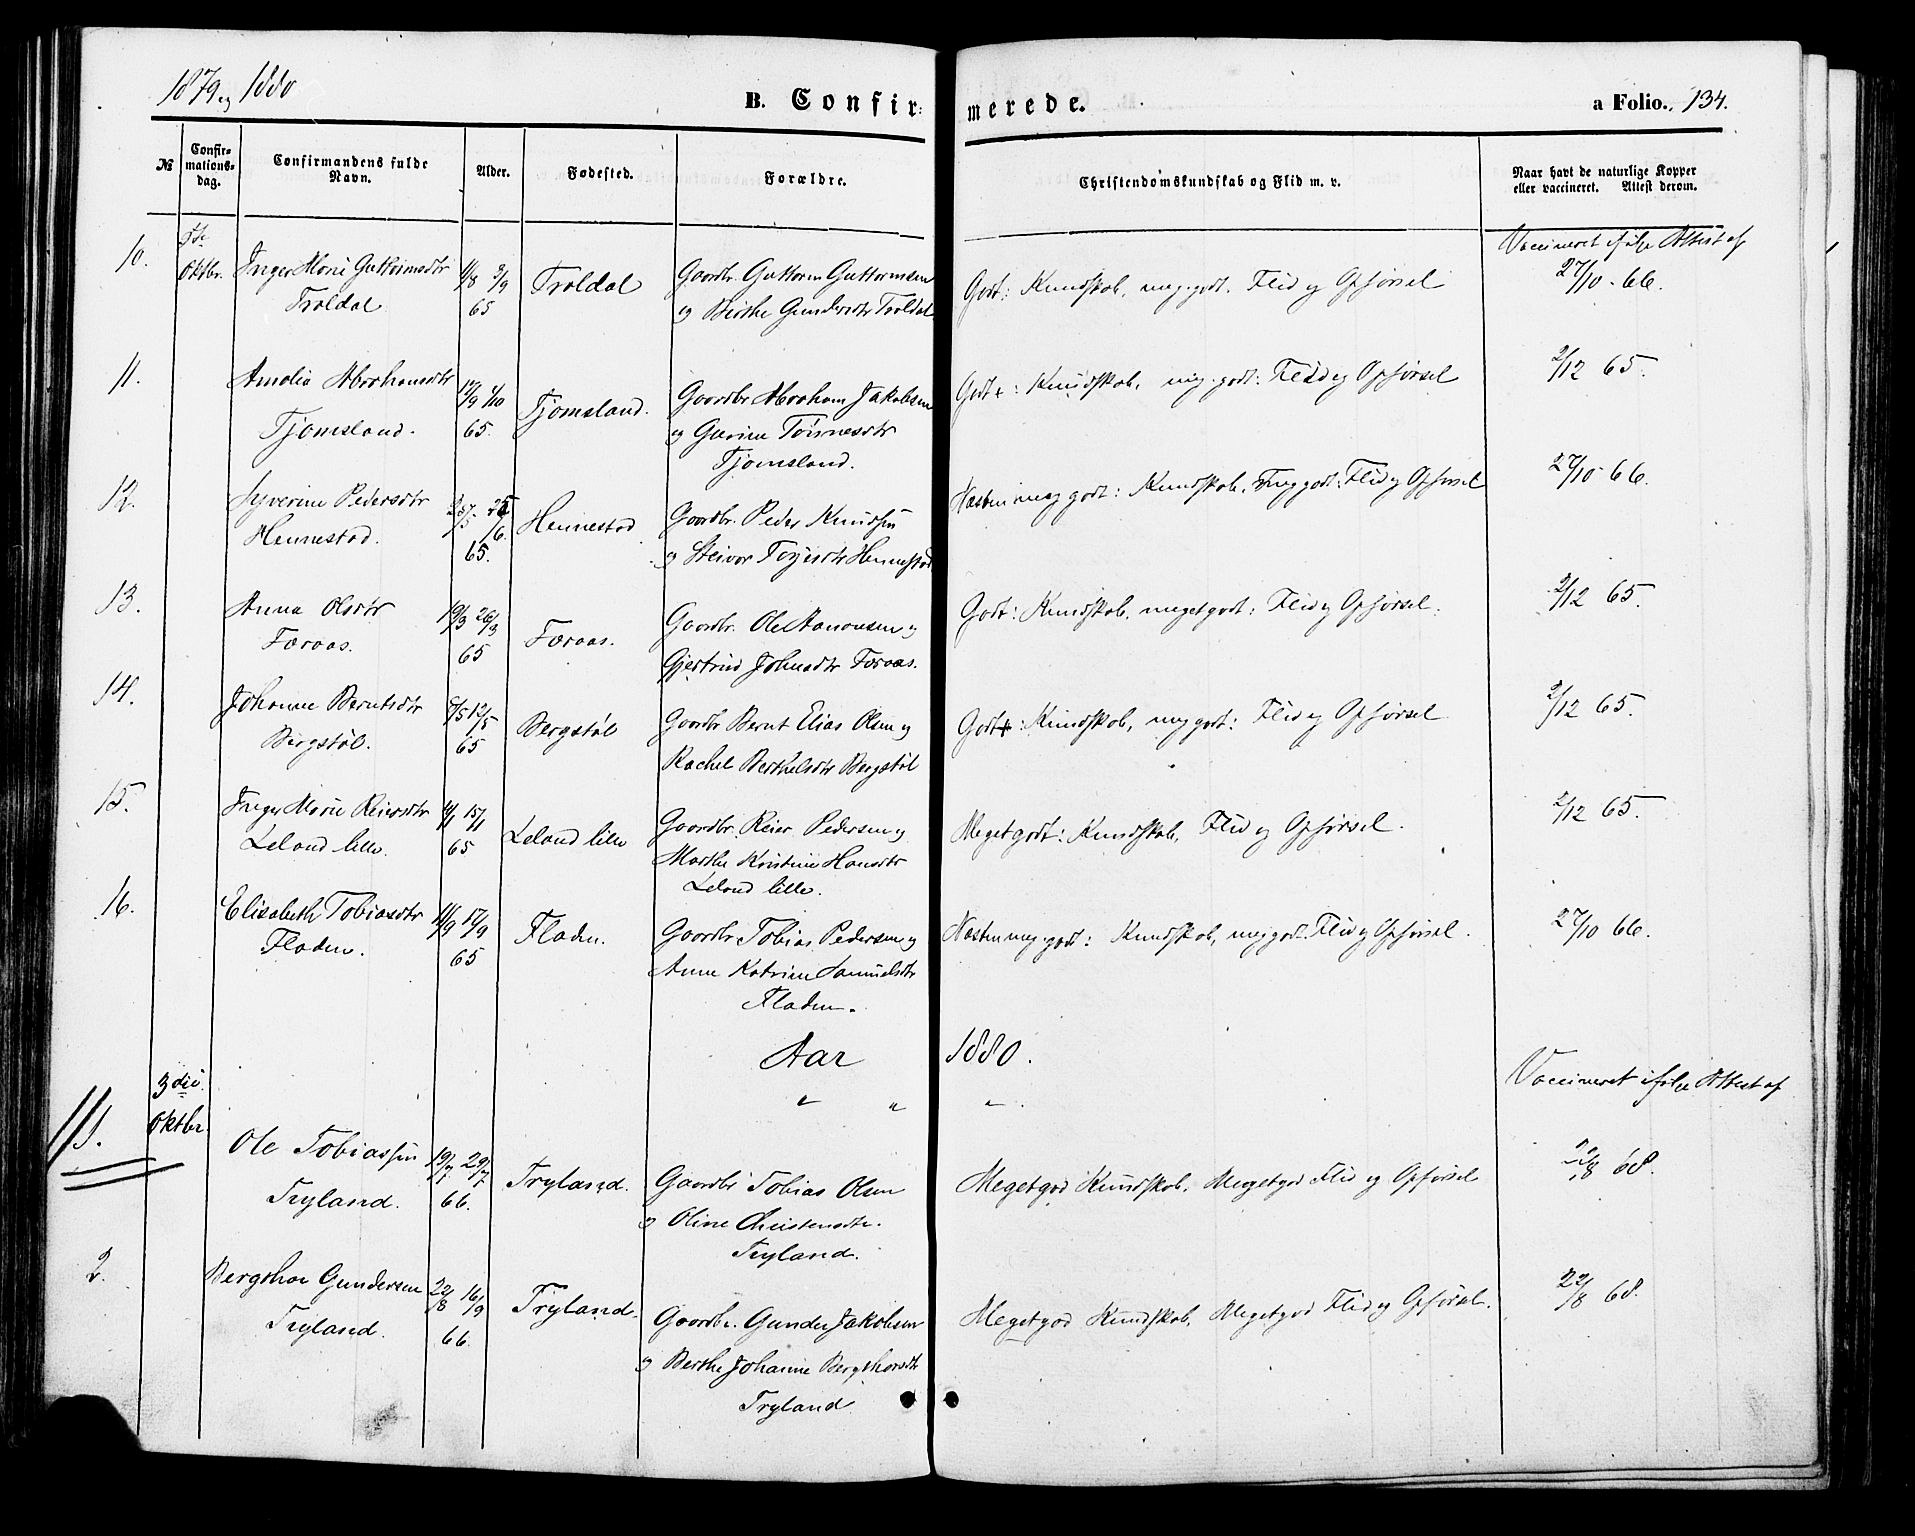 1879 og 1880
B. Confir: merede.
a Folio. 134.
No
Confir-
mations-
dag.
Confirmandens fulde
Navn.
Alder.
Fødested.
Forældre.
Christendomskundskab og Flid m. v.
Naar havt de naturlige Kopper
eller vaccineret. Attest derom.
Vaccineret ifølge Attest af
10.
Oktbr.
Inger Marie Guttormsdtr
Troldal
65
Troldal
Gaardbr. Guttorm Guttormsen
og Birthe Gundersdtr Troldal
Godt: Kundskab, meg. godt. Flid og Opførsel
27/10 - 66.
11.
Amalia Abrahamsdtr
Tjomsland.
12/9 1/10
65.
Tjomsland.
Gaardbr Abraham Jakobsen
og Gurine Tønnesdtr
Tjomsland.
Godt+: Kundskab, meg. godt: Flid og Opførsel
2/12 65.
12.
Syverine Pedersdtr
Hennestad.
65.
Hennestad
Gaardbr. Peder Knudsen
og Steivor Torjesdtr Hennestad
Næsten meg godt: Kundskab, meg godt: Flid og Opførsel
27/10 66.
13.
Anna Olsdtr
Færaas.
19/3 26/3
65
Færaas.
Gaardbr. Ole Aanonsen og
Gjertrud Johnsdtr Færaas.
Godt: Kundskab, meget godt: Flid og Opførsel.
2/12 65.
14.
Johanne Berntsdtr
Bergstøl.
65
Bergstøl
Gaardbr Bernt Elias Olsen og
Rachel Berthelsdtr Bergstøl
Godt+: Kundskab, meg godt: Flid og Opførsel
2/12 65.
15.
Inger Marie Reiersdtr
Leland lille.
4/1 15/1
65
Leland lille
Gaardbr. Reier Pedersen og
Marthe Kristine Hansdtr
Leland lille.
Meget godt: Kundskab, Flid og Opførsel.
2/12 65.
16.
Elisabeth Tobiasdtr
Fladen.
11/9 17/9
65
Fladen.
Gaardbr Tobias Pedersen og
Anne Katrine Samuelsdtr
Fladen.
Næsten meg. godt: Kundskab, meg godt. Flid og Opførsel.
27/10 66.
Aar 1880.
3die
Oktbr.
Vaccineret ifølge Attest af
1.
Ole Tobiassen
Tryland.
19/7 29/7
66.
Tryland.
Gaardbr Tobias Olsen
og Oline Christensdtr.
Tryland.
Megetgod Kundskab, Megetgod Flid og Opførsel
22/8 68.
2.
Bergthor Gundersen
Tryland.
22/8 16/9
66.
Tryland.
Gaardbr. Gunder Jakobsen
og Berthe Johanne Bergthorsdtr
Tryland
Megetgod Kundskab, Megetgod Flid og Opførsel.
22/8 68.